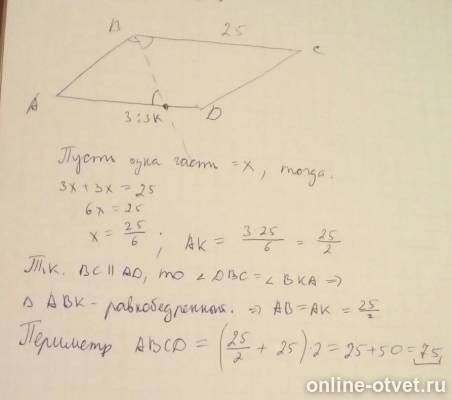 B
25
C
A
3:3 K
D
Пусть одна часть = x, тогда.
3x + 3x = 25
6x = 25
x = 25/6 ; AK = 3·25/6 = 25/2
Т.к. BC || AD, то ∠DBC = ∠BKA ⇒
Δ ABK - равнобедренный. ⇒ AB = AK = 25/2
Периметр ABCD = (25/2 + 25)·2 = 25+50 = 75
online-otvet.ru